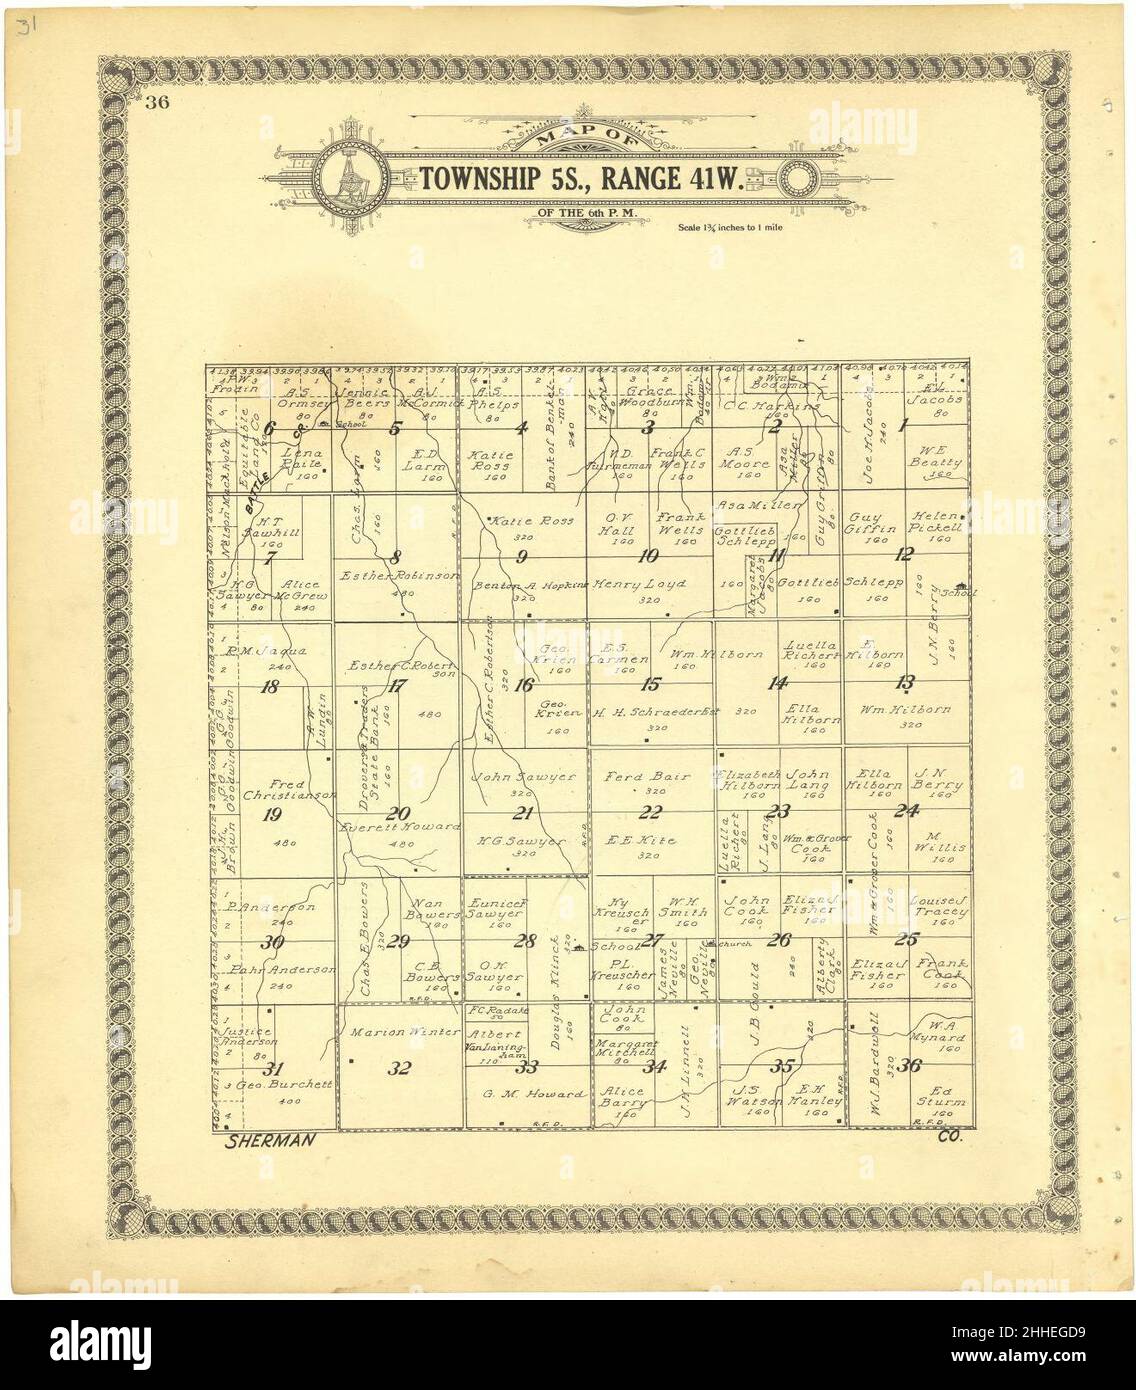 31
36
MAP OF
TOWNSHIP 5S., RANGE 41W.
OF THE 6th P. M.
Scale 1¾ inches to 1 mile
P.W. Frodin
A.S. Ormsey
80
Jennie Beers
80
A.J. McCormick
80
A.S. Phelps
80
Bank of Benkelman
240
Grace Woodburn
80
Wm. Bodamer
C.C. Harkins
160
Joe H. Jacobs
240
F.L. Jacobs
80
6
5
4
3
2
1
Equitable Land Co
BATTLE CR.
School
Lena Raile
160
160
E.D. Larm
160
Katie Ross
160
Frank C Wells
160
A.S. Moore
160
Asa Miller
80
Guy Griffin
80
80
W.E. Beatty
160
Chas. Logan
160
H.T. Sawhill
160
Katie Ross
320
O.V. Hall
160
Frank Wells
160
Asa Miller
Gottlieb Schlepp
160
Guy Giffin
160
Helen Pickell
160
7
8
9
10
11
12
H.G. Sawyer
80
Alice McGrew
240
Esther Robinson
480
Benton A Hopkins
320
Henry Loyd
320
160
Margaret Jacobs
80
Gottlieb Schlepp
160
160
160
J N Berry
160
School
R.M. Jaqua
240
Esther C. Robertson
480
Esther C. Robertson
320
Geo. Krien
160
E.S. Carmen
160
Wm. Hilborn
Luella Richert
160
E. Hilborn
160
18
17
16
15
14
13
A.W. Lundin
Drovers & Traders State Bank
160
Geo. Krien
160
H. H. Schraeder Est
320
320
Ella Hilborn
160
Wm. Hilborn
320
G.G. Goodwin
Fred Christianson
480
John Sawyer
320
Ferd Bair
320
Elizabeth Hilborn
160
John Lang
160
Ella Hilborn
160
J. N Berry
160
19
20
21
22
23
24
Brown
Everett Howard
480
H.G. Sawyer
320
E E Kite
320
Luella Richert
80
J. Lang
80
Wm. & Grover Cook
160
Wm & Grover Cook
160
160
M. Willis
160
P. Anderson
240
Chas E Bowers
320
Nan Bowers
160
Eunice F Sawyer
160
Hy Kreuscher
160
W.H. Smith
160
John Cook
160
Eliza J Fisher
160
Louise J Tracey
160
30
29
28
27
26
25
Pahr Anderson
240
C.E. Bowers
160
R.F.D.
O.H. Sawyer
160
Douglas Klinck
320
160
School
P.L. Kreuscher
160
James Neville
80
Geo. Neville
80
Church
J B Gould
240
320
Alberty Clark
80
Eliza J Fisher
160
Frank Cook
160
Justice Anderson
80
Marion Winter
F.C. Radake
50
Albert Van Laningham
110
John Cook
80
Margaret Mitchell
80
J.H Linnell
320
W.J. Bardwell
320
W.A Mynard
160
31
32
33
34
35
36
Geo. Burchett
400
G. M. Howard
R.F.D.
Alice Barry
160
J.S. Watson
160
E.H Hanley
160
R.F.D.
Ed Sturm
160
R.F.D.
SHERMAN CO.
alamy
Image ID: 2HHEGD9
www.alamy.com